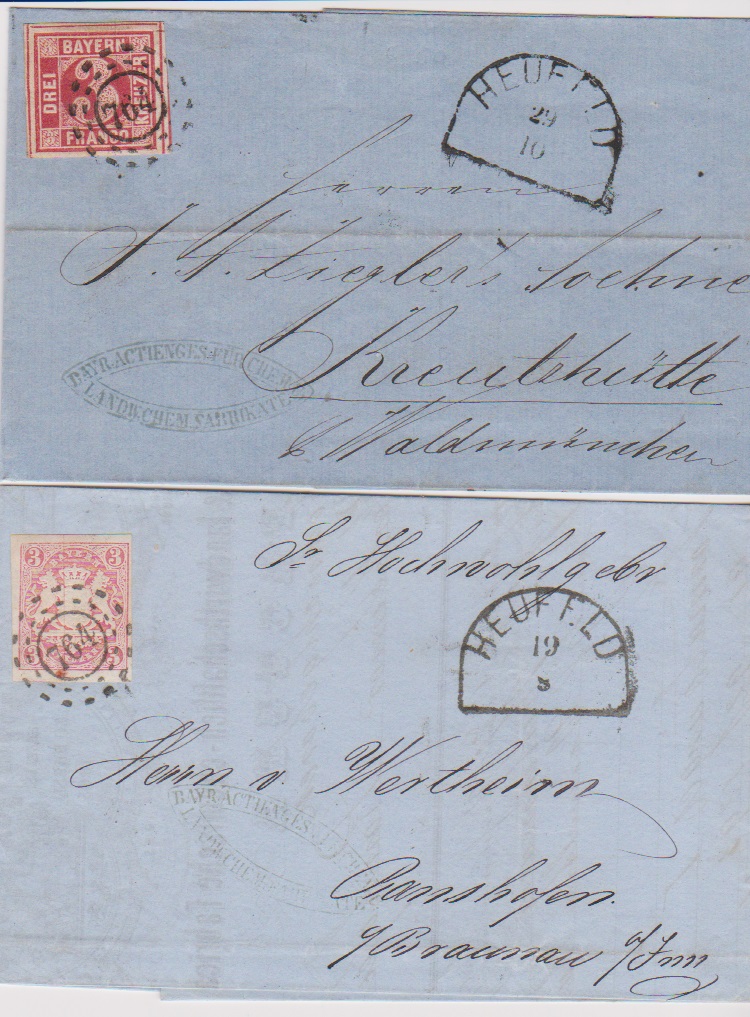 BAYERN
DREI
3
KREUZER
FRANCO
764
HEUFELD
29
10
Herren
J. A. Ziegler's Soehne
Kreutzhütte
b/ Waldmünchen
BAYR. ACTIENGES. FÜR CHEM. U.
LANDW. CHEM. FABRIKATE
3 3
3 3
764
Sr Hochwohlgebr
HEUFELD
19
Herrn v. Wertheim
Ranshofen.
b/Braunau a/Inn
BAYR. ACTIENGES. FÜR CHEM.
LANDW. CHEM. FABRIKATE